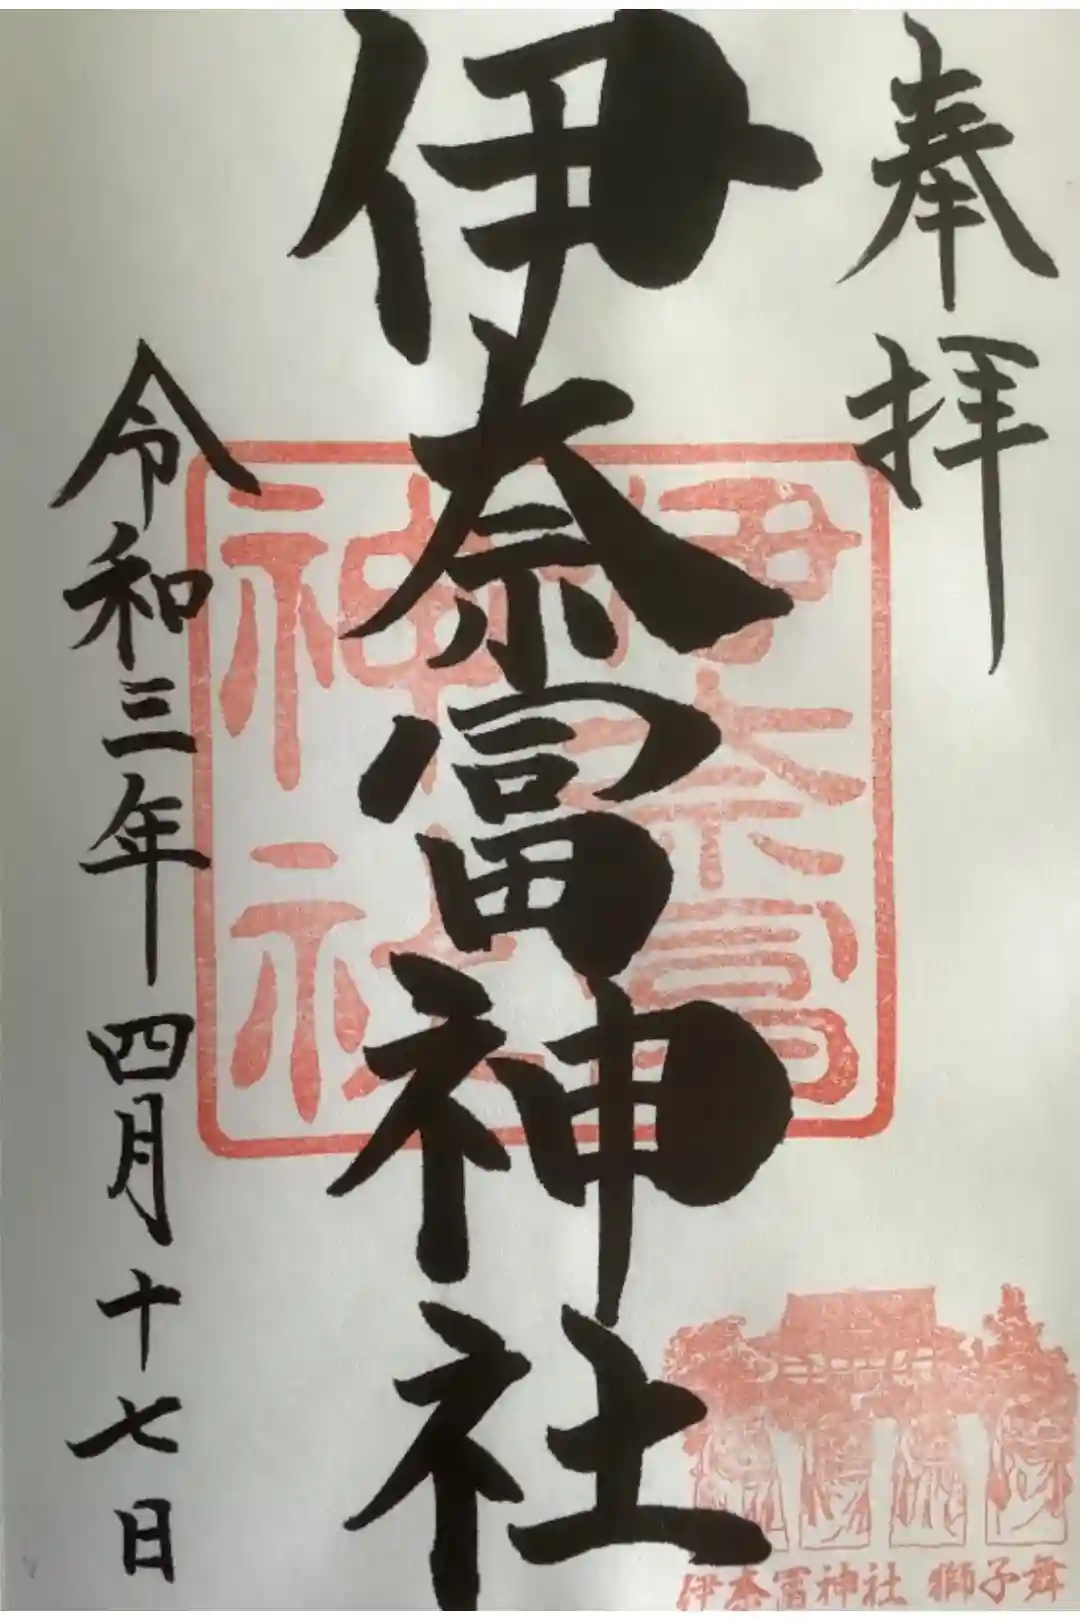 奉拝
伊奈冨神社
伊奈冨神社
令和三年四月十七日
伊奈冨神社 獅子舞